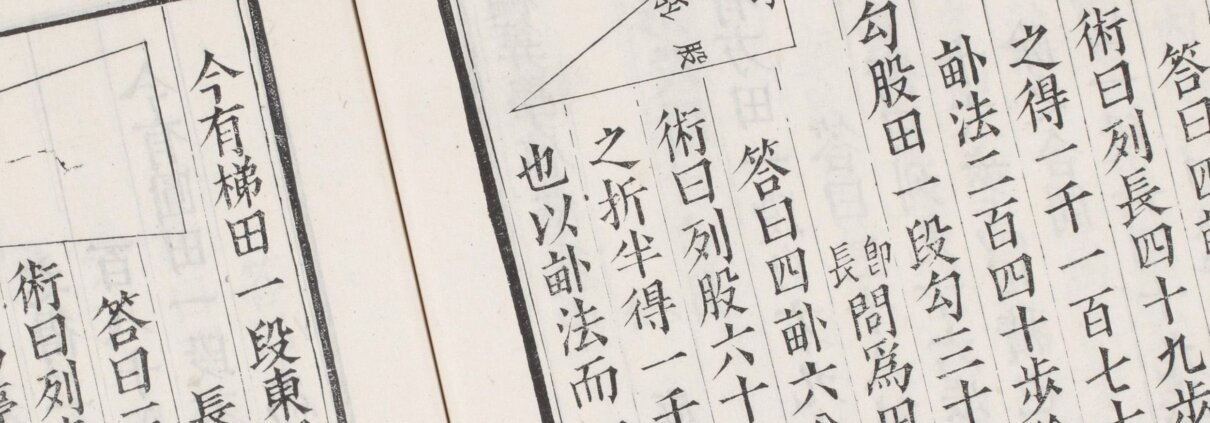 答曰四
術曰列長四十九步
之得一千一百七十
畝法二百四十步
勾股田一段勾三十
即長問爲田
答曰四畝六
術曰列股六十
之折半得一千
也以畝法而
股
今有梯田一段東
長
答曰
術曰列